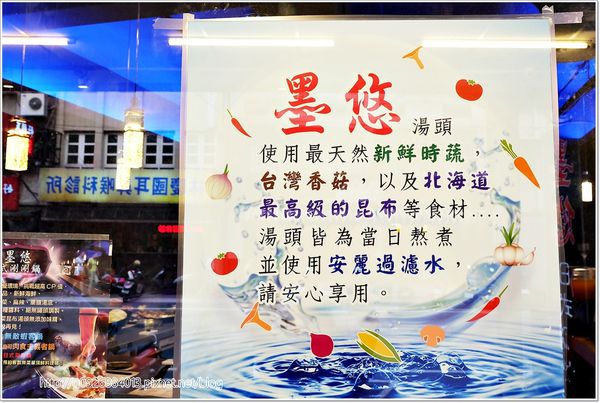 墨悠 湯頭
使用最天然新鮮時蔬，
台灣香菇，以及北海道
最高級的昆布等食材....
湯頭皆為當日熬煮
並使用安麗過濾水，
請安心享用。
國耳鼻喉科診所
墨悠
式涮涮鍋